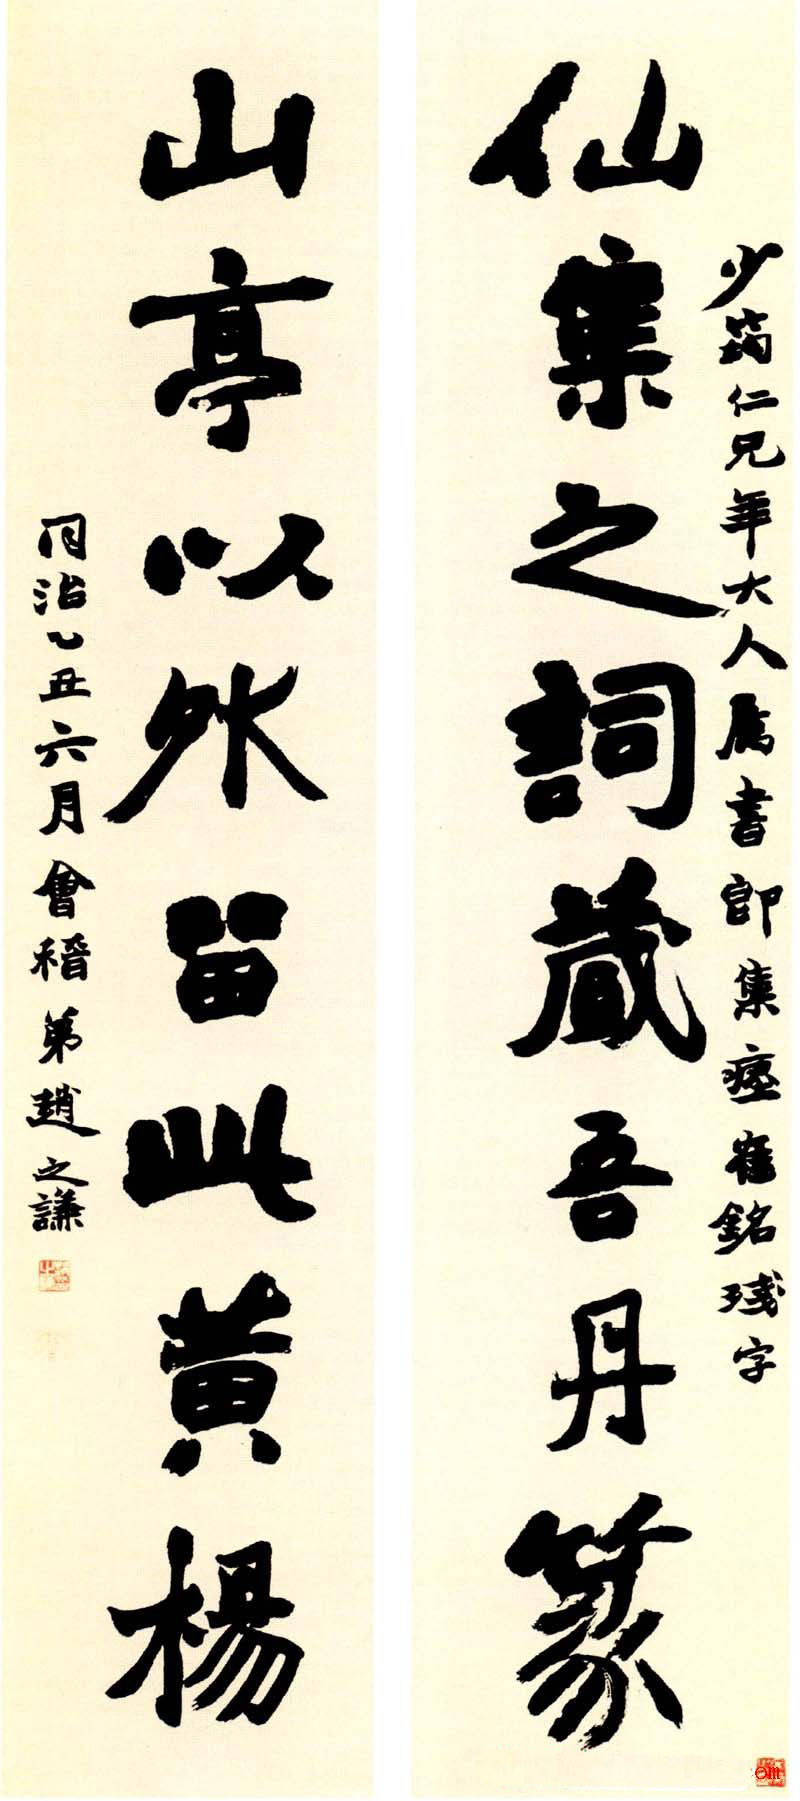 少筠仁兄年大人属書即集瘞崔銘残字
仙集之詞蔵吾丹篆
山亭以外留此黄楊
同治乙丑六月會稽弟趙之謙